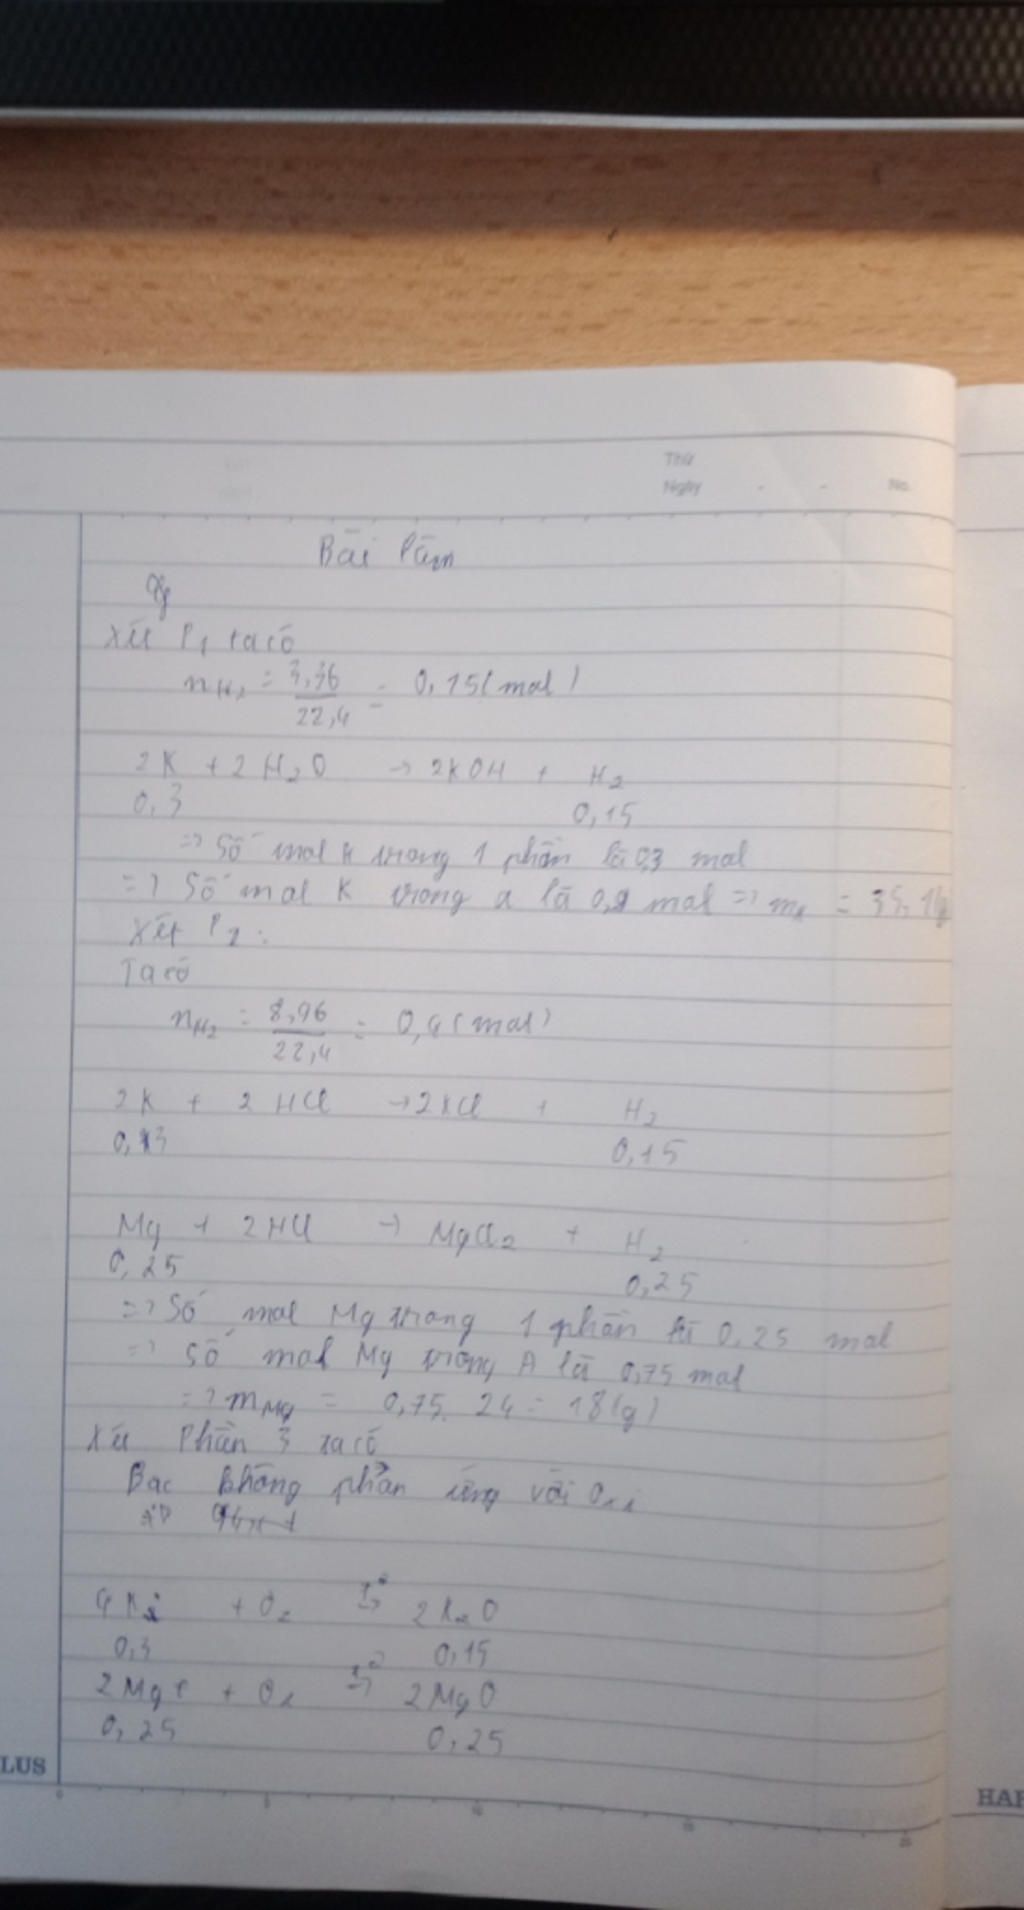 Thứ
Ngày - - No.
Bài làm
Xét P1 ta có
nH2 = 3,36 / 22,4 = 0,15 (mol)
2K + 2H2O → 2KOH + H2
0,3 0,15
=> Số mol K trong 1 phần là 0,3 mol
=> Số mol K trong a là 0,9 mol => mK = 35,1g
Xét P2:
Ta có
nH2 = 8,96 / 22,4 = 0,4 (mol)
2K + 2HCl → 2KCl + H2
0,3 0,15
Mg + 2HCl → MgCl2 + H2
0,25 0,25
=> Số mol Mg trong 1 phần là 0,25 mol
=> Số mol Mg trong A là 0,75 mol
=> mMg = 0,75. 24 = 18(g)
Xét Phần 3 ta có
Bạc không phản ứng với O2
4K + O2 t°→ 2K2O
0,3 0,15
2Mg + O2 t°→ 2MgO
0,25 0,25
LUS
0 5 10 15 20
HAP